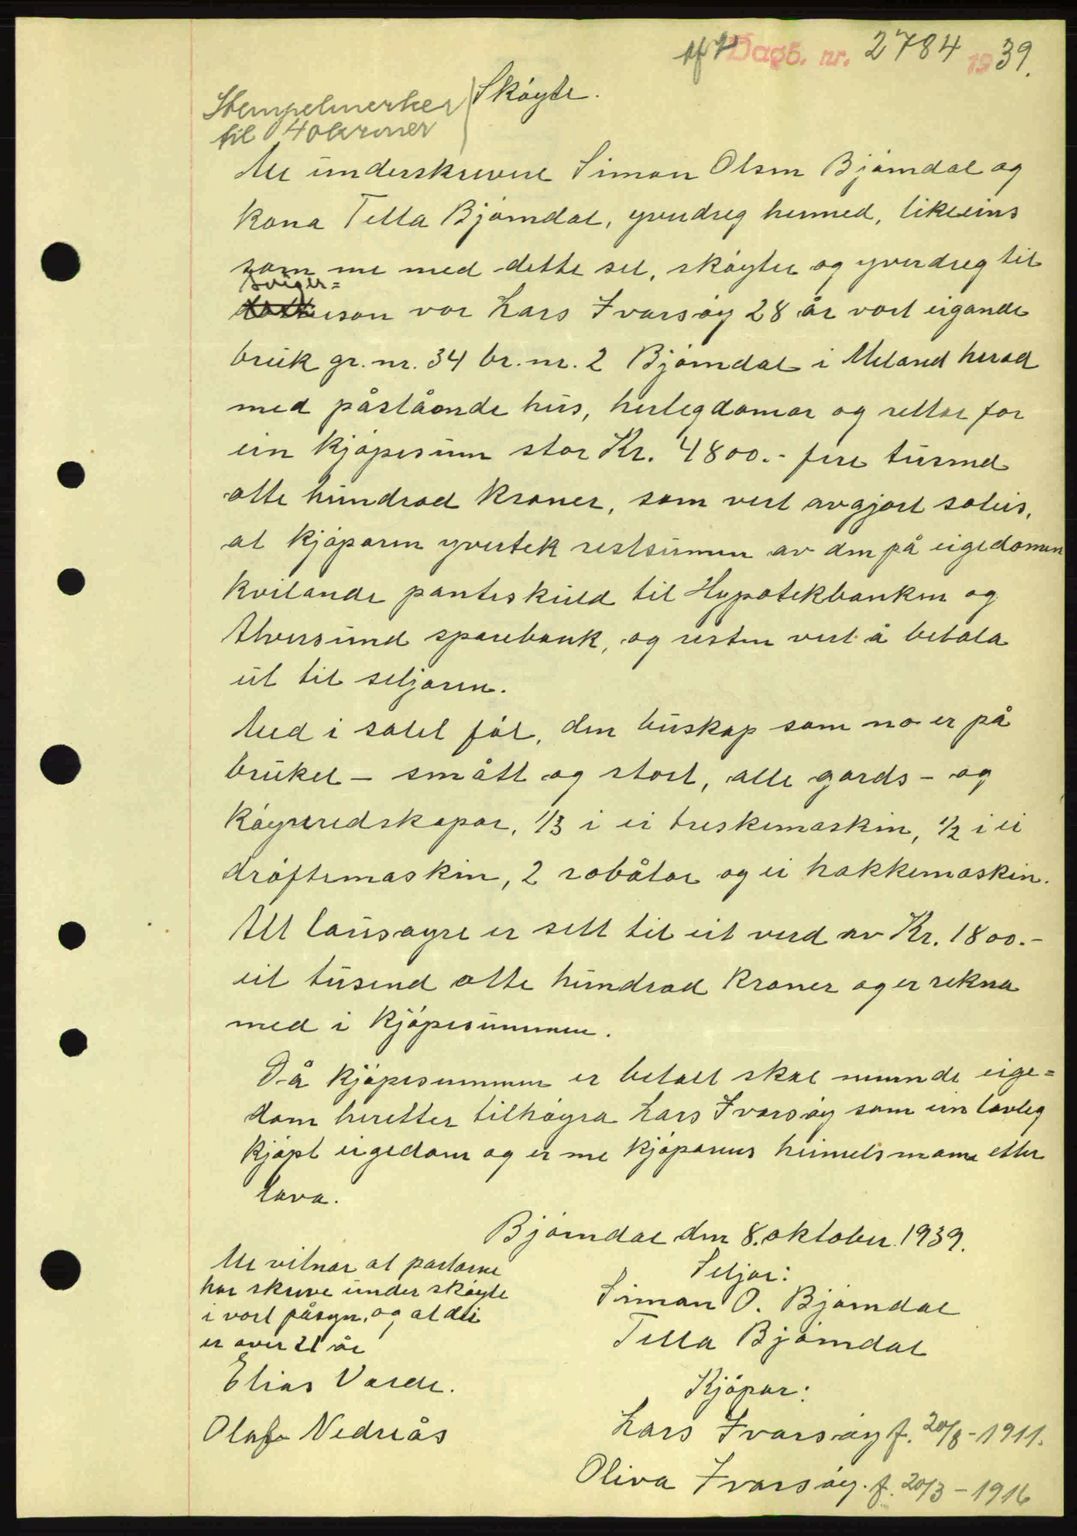 Dagb. nr. 2784 1939.
Stempelmerker
til 40 kroner
Skøyte.
Me underskrevne Simon Olsen Bjørndal og
kona Tella Bjørndal, yverdreg hermed, likeeins
som me med dette sel, skøyter og yverdreg til
Sviger=
son vor Lars Ivarsøy 28 år vort eigande
bruk gr. nr. 34 br. nr. 2 Bjørndal i Meland herad
med påståande hus, herlegdomar og rettar for
ein kjøpesum stor Kr. 4800.- fire tusend
otte hundrad kroner, som vert avgjort soleis,
at kjøparen yvertek restsummen av den på eigedomen
kvilande panteskuld til Hypotekbanken og
Alversund sparebank, og resten vert å betala
ut til seljaren.
Med i salet føl, den buskap som no er på
bruket - smått og stort, alle gards- og
køyreredskapar, 1/3 i ei treskemaskin, 1/2 i ei
drøftemaskin, 2 robåtar og ei hakkemaskin.
Alt lausøyre er sett til eit verd av Kr. 1800.-
eit tusend otte hundrad kroner og er rekna
med i kjøpesummen.
Då kjøpesummen er betalt skal nemnde eige=
dom heretter tilhøyra Lars Ivarsøy som ein lovleg
kjøpt eigedom og er me kjøparens heimelsmann etter
lova.
Bjørndal den 8. oktober 1939.
Me vitnar at partarne
har skreve under skøyte
i vort påsyn, og at dei
er over 21 år
Elias Varde.
Olaf Nedreås
Seljar:
Simon O. Bjørndal
Tella Bjørndal
Kjøpar:
Lars Ivarsøy f. 20/8-1911.
Oliva Ivarsøy. f. 20/3-1916